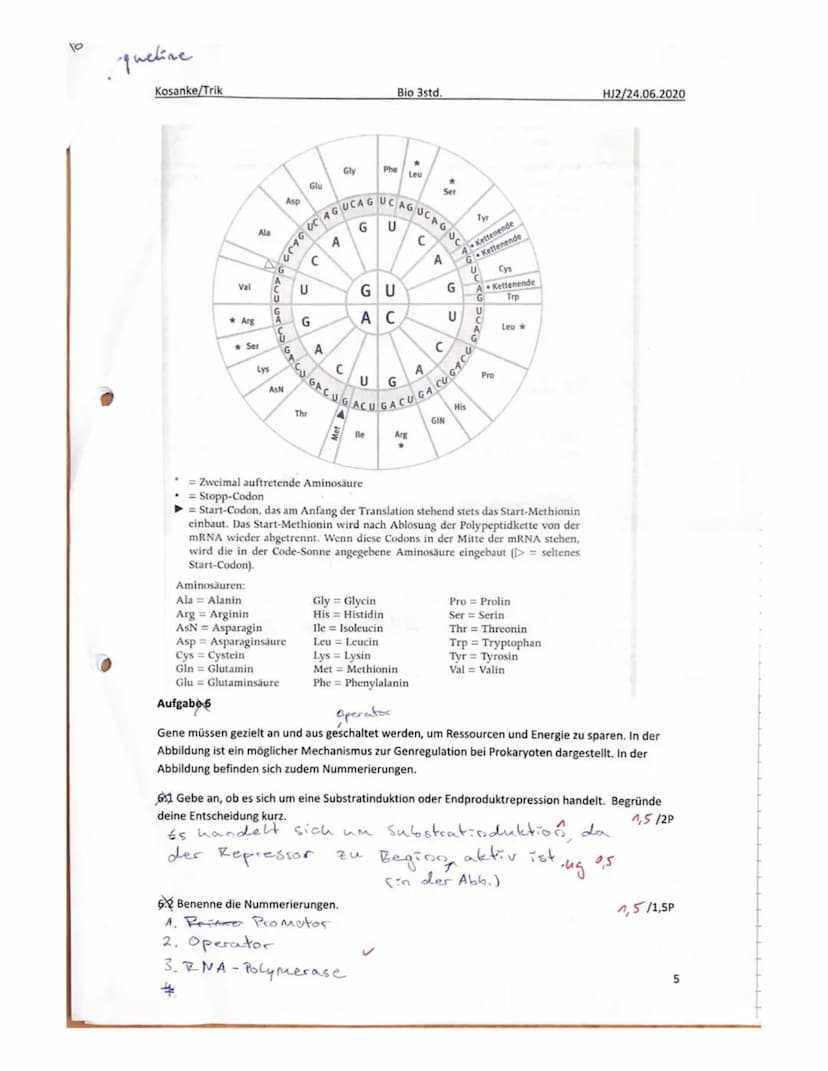 10
queline
Kosanke/Trik Bio 3std. HJ2/24.06.2020
Gly Phe * Leu
Glu * Ser
Asp Tyr
Ala • Kettenende
• Kettenende
Val Cys
• Kettenende
* Arg Trp
* Ser Leu *
Lys Pro
AsN His
Thr GlN
Met Ile Arg *
G U
A C
* = Zweimal auftretende Aminosäure
• = Stopp-Codon
▶ = Start-Codon, das am Anfang der Translation stehend stets das Start-Methionin
einbaut. Das Start-Methionin wird nach Ablösung der Polypeptidkette von der
mRNA wieder abgetrennt. Wenn diese Codons in der Mitte der mRNA stehen,
wird die in der Code-Sonne angegebene Aminosäure eingebaut (▷ = seltenes
Start-Codon).
Aminosäuren:
Ala = Alanin Gly = Glycin Pro = Prolin
Arg = Arginin His = Histidin Ser = Serin
AsN = Asparagin Ile = Isoleucin Thr = Threonin
Asp = Asparaginsäure Leu = Leucin Trp = Tryptophan
Cys = Cystein Lys = Lysin Tyr = Tyrosin
Gln = Glutamin Met = Methionin Val = Valin
Glu = Glutaminsäure Phe = Phenylalanin
Aufgabe 6
Operator
Gene müssen gezielt an und aus geschaltet werden, um Ressourcen und Energie zu sparen. In der
Abbildung ist ein möglicher Mechanismus zur Genregulation bei Prokaryoten dargestellt. In der
Abbildung befinden sich zudem Nummerierungen.
6.1 Gebe an, ob es sich um eine Substratinduktion oder Endproduktrepression handelt. Begründe
deine Entscheidung kurz. 1,5 /2P
Es handelt sich um Substratinduktion, da 1
der Repressor zu Beginn aktiv ist. ug 0,5
(in der Abb.)
6.2 Benenne die Nummerierungen. 1,5 /1,5P
1. Promotor
2. Operator
3. RNA-Polymerase
4.
5